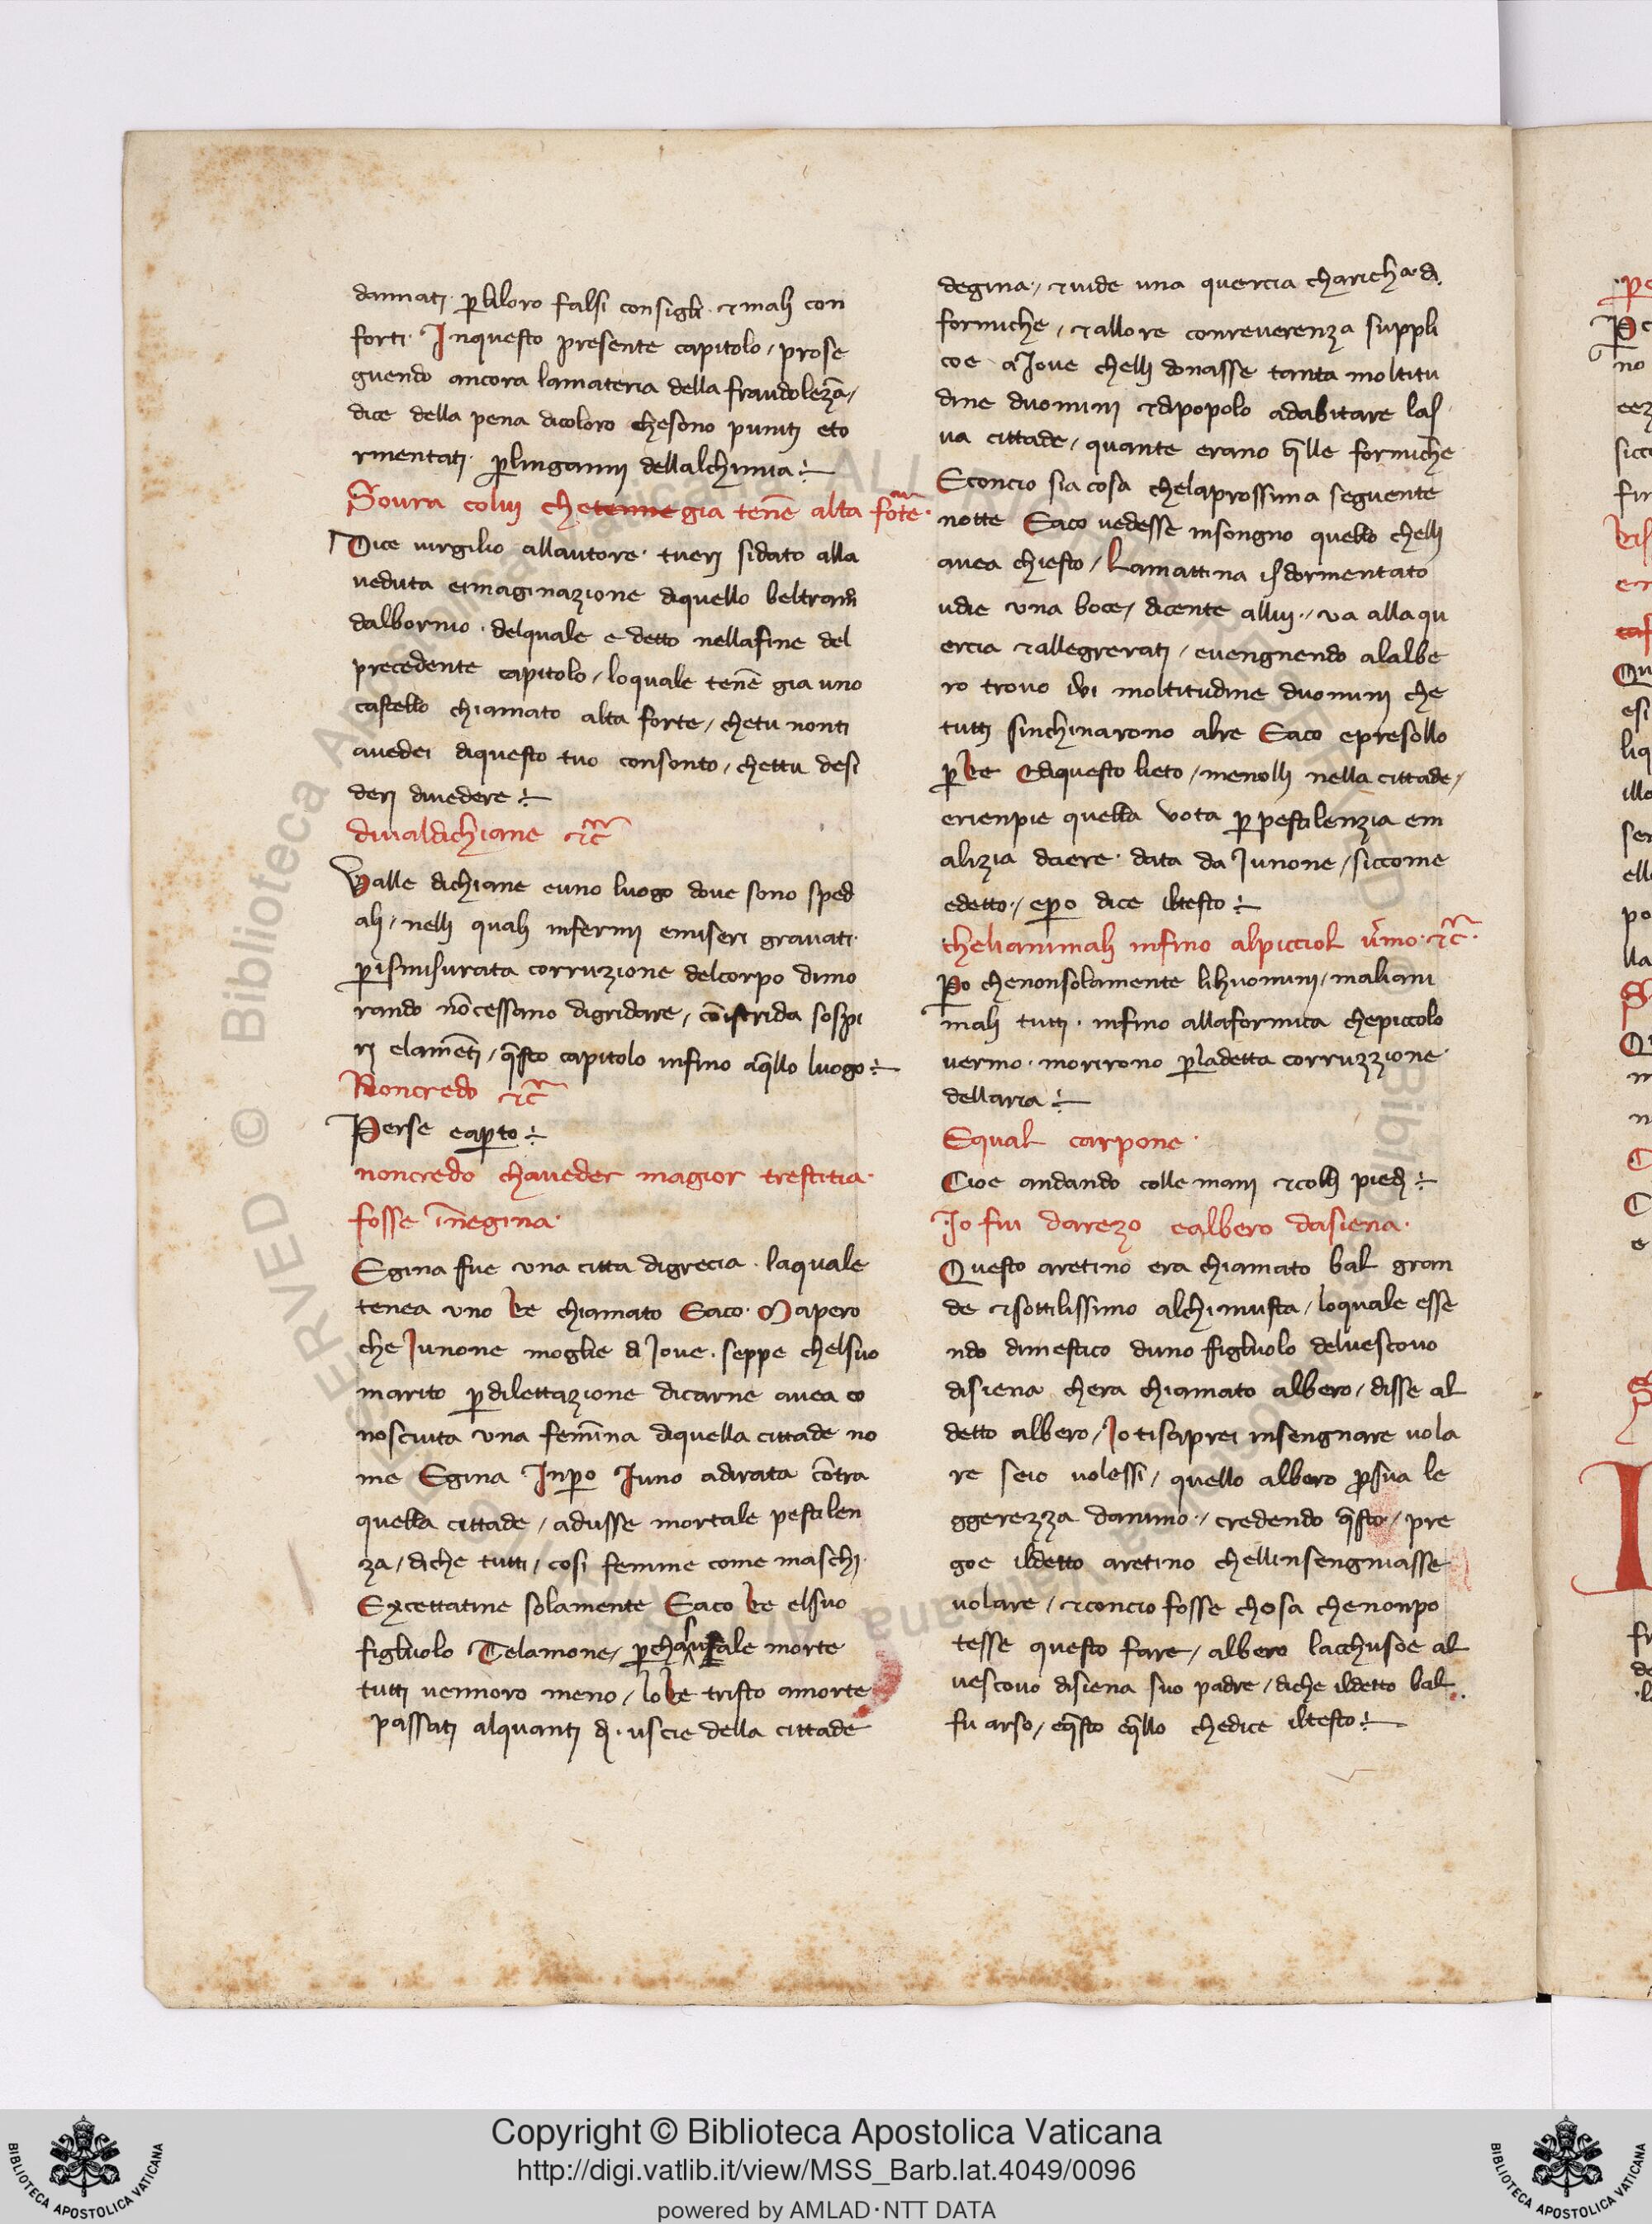 dannati· p liloro falsi consigli· et mali con
forti· Inquesto presente capitolo / prose
guendo ancora lamateria della fraudolezā /
dice della pena dicoloro chesono puniti eto
rmentati· plinganni dellalchimia ÷
Soura colui chetenne gia tenē alta fote·
Dice uirgilio allautore· tueri sidato alla
ueduta etmaginazione diquello beltram̄
dalbornio· delquale e detto nellafine del
precedente capitolo / loquale tenē gia uno
castello chiamato alta forte / chetu nonti
auedei diquesto tuo consonto / chettu desi
deri diuedere ÷
diualdichiane etc̄
Valle dichiane euno luogo doue sono sped
ali / nelli quali infermi emiseri grauati·
p ismisurata corruzione delcorpo dimo
rando nōcessano digridare / cōistrida sospi
ri elamēti / q̄sto capitolo infino aq̄llo luogo ÷
Noncredo etc̄
Perse eapto ÷
noncredo chaueder magior trestitia·
fosse inegina·
Egina fue una citta digrecia· laquale
tenea uno Re chiamato Eaco· Mapero
che Iunone moglie di Ioue· seppe chelsuo
marito p dilettazione dicarne auea co
nosciuta una femīna diquella cittade no
me Egina Inpo Iuno adirata cōtra
quella cittade / adusse mortale pestilen
za / diche tutti / cosi femine come maschi·
Excettatine solamente Eaco Re elsuo
figliuolo Telamone / tale morte
tutti uennoro meno / loRe tristo amorte
passati alquanti di· uscie della cittade
degina· / et uide una quercia charicha· di
formiche / et allo re conreuerenza suppli
coe a Ioue chelli donasse tanta moltitu
dine duomini et dipopolo adabitare las
ua cittade / quante erano q̄lle formiche
Econcio sia cosa chelaprossima seguente
notte Eaco uedesse insongno quello chelli
auea chiesto / Lamattina isdormentato
udie una boce / dicente allui· / ua alla qu
ercia et allegrerati / euengnendo alalbe
ro trouo iui moltitudine duomini che
tutti sinchinarono alre Eaco epresollo
p Re Ediquesto lieto / menolli nella cittade /
erienpie quella vota p pestilenzia em
alizia daere· data da Iunone / siccome
edetto· / epo dice iltesto ÷
chelianimali infino alpicciol v̄mo· etc̄·
Po chenonsolamente lihuomini / maliani
mali tutti· infino allaformica chepiccolo
uermo· morirono pladetta corruzzione
dellaria ÷
Equal carpone·
Cioe andando colle mani et colli piedi ÷
Io fui darezo ealbero dasiena·
Questo aretino era chiamato bal gran
de et sottilissimo alchimista / loquale esse
ndo dimestico duno figliuolo deluescouo
disiena chera chiamato albero / disse al
detto albero / Io tisaprei insengnare uola
re seio uolessi / quello albero psua le
ggerezza danimo· / credendo q̄sto· / pre
goe ildetto aretino chellinsengniasse
uolare / et concio fosse chosa chenonpo
tesse questo fare / albero lacchusoe al
uescouo disiena suo padre / diche ildetto bal
fu arso / eq̄sto eq̄llo chedice iltesto ÷
Copyright © Biblioteca Apostolica Vaticana
http://digi.vatlib.it/view/MSS_Barb.lat.4049/0096
powered by AMLAD·NTT DATA
BIBLIOTECA APOSTOLICA VATICANA
BIBLIOTECA APOSTOLICA VATICANA